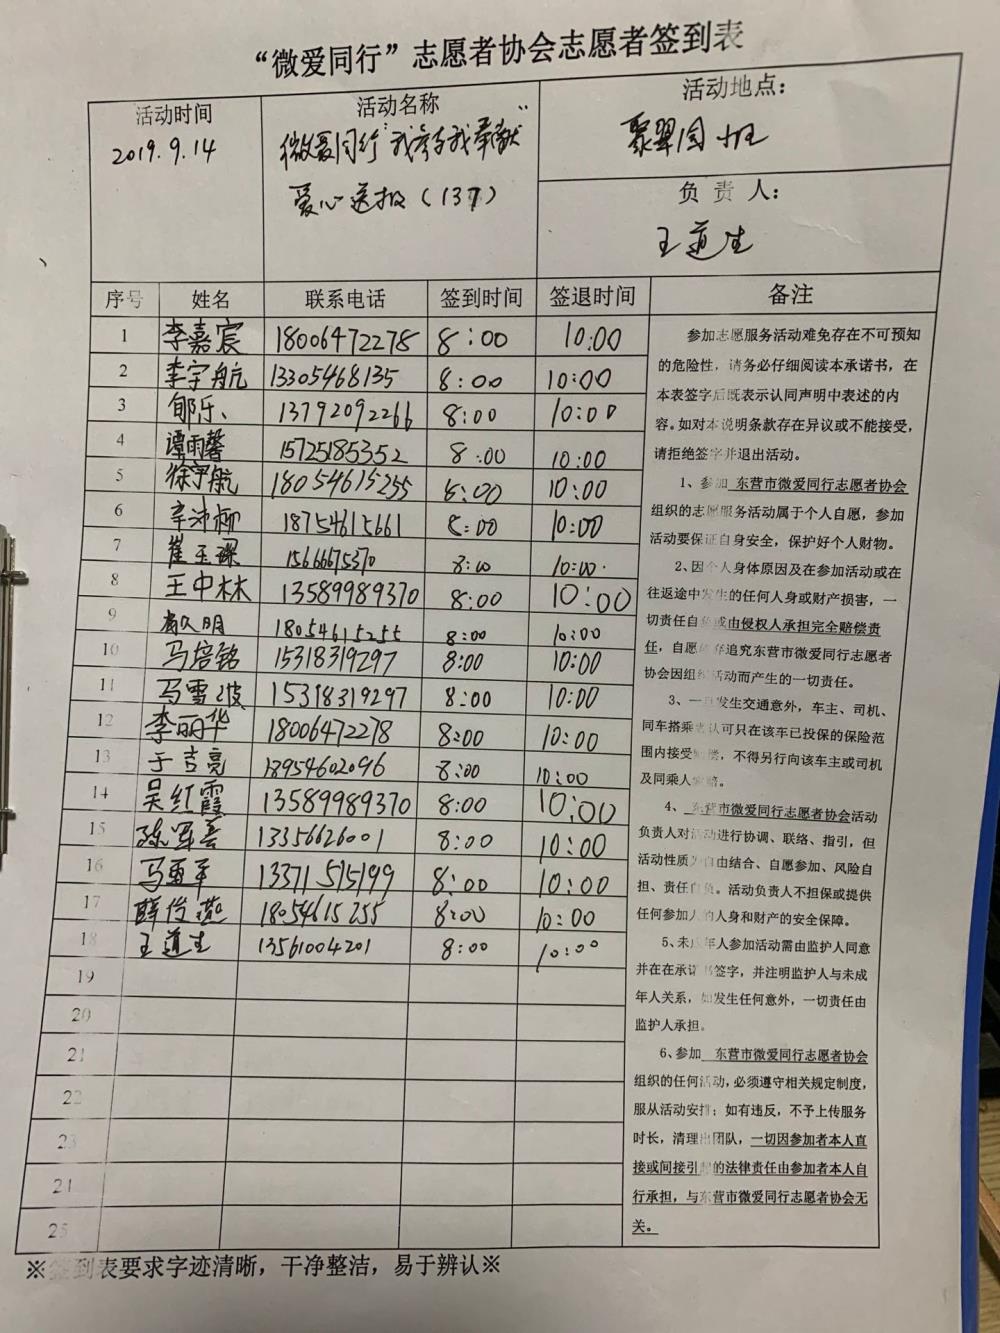 “微爱同行”志愿者协会志愿者签到表
活动时间
2019.9.14
活动名称
微爱同行“我参与我奉献”
爱心送报（137）
活动地点：
聚翠园
负 责 人：
王道生
序号 姓名 联系电话 签到时间 签退时间 备注
1 李嘉宸 18006472278 8:00 10:00
2 李宇航 13305468135 8:00 10:00
3 郇乐 13792092266 8:00 10:00
4 谭雨馨 15725185352 8:00 10:00
5 徐宇航 18054615255 8:00 10:00
6 辛沛柳 18754615661 8:00 10:00
7 崔玉琛 15666675370 8:00 10:00
8 王中林 13589989370 8:00 10:00
9 18054615255 8:00 10:00
10 马培铭 15318319297 8:00 10:00
11 马雪波 15318319297 8:00 10:00
12 李丽华 18006472278 8:00 10:00
13 于吉亮 18954602096 8:00 10:00
14 吴红霞 13589989370 8:00 10:00
15 13356626001 8:00 10:00
16 13371515199 8:00 10:00
17 薛俊燕 18054615255 8:00 10:00
18 王道生 13561004201 8:00 10:00
19
20
21
22
23
24
25
参加志愿服务活动难免存在不可预知
的危险性，请务必仔细阅读本承诺书，在
本表签字后既表示认同声明中表述的内
容。如对本说明条款存在异议或不能接受，
请拒绝签字并退出活动。
1、参加 东营市微爱同行志愿者协会
组织的志愿服务活动属于个人自愿，参加
活动要保证自身安全，保护好个人财物。
2、因个人身体原因及在参加活动或在
往返途中发生的任何人身或财产损害，一
切责任自负或由侵权人承担完全赔偿责
任，自愿放弃追究东营市微爱同行志愿者
协会因组织活动而产生的一切责任。
3、一旦发生交通意外，车主、司机、
同车搭乘者认可只在该车已投保的保险范
围内接受赔偿，不得另行向该车主或司机
及同乘人索赔。
4、东营市微爱同行志愿者协会活动
负责人对活动进行协调、联络、指引，但
活动性质为自由结合、自愿参加、风险自
担、责任自负。活动负责人不担保或提供
任何参加人的人身和财产的安全保障。
5、未成年人参加活动需由监护人同意
并在在承诺书签字，并注明监护人与未成
年人关系，如发生任何意外，一切责任由
监护人承担。
6、参加 东营市微爱同行志愿者协会
组织的任何活动，必须遵守相关规定制度，
服从活动安排；如有违反，不予上传服务
时长，清理出团队，一切因参加者本人直
接或间接引起的法律责任由参加者本人自
行承担，与东营市微爱同行志愿者协会无
关。
※签到表要求字迹清晰，干净整洁，易于辨认※